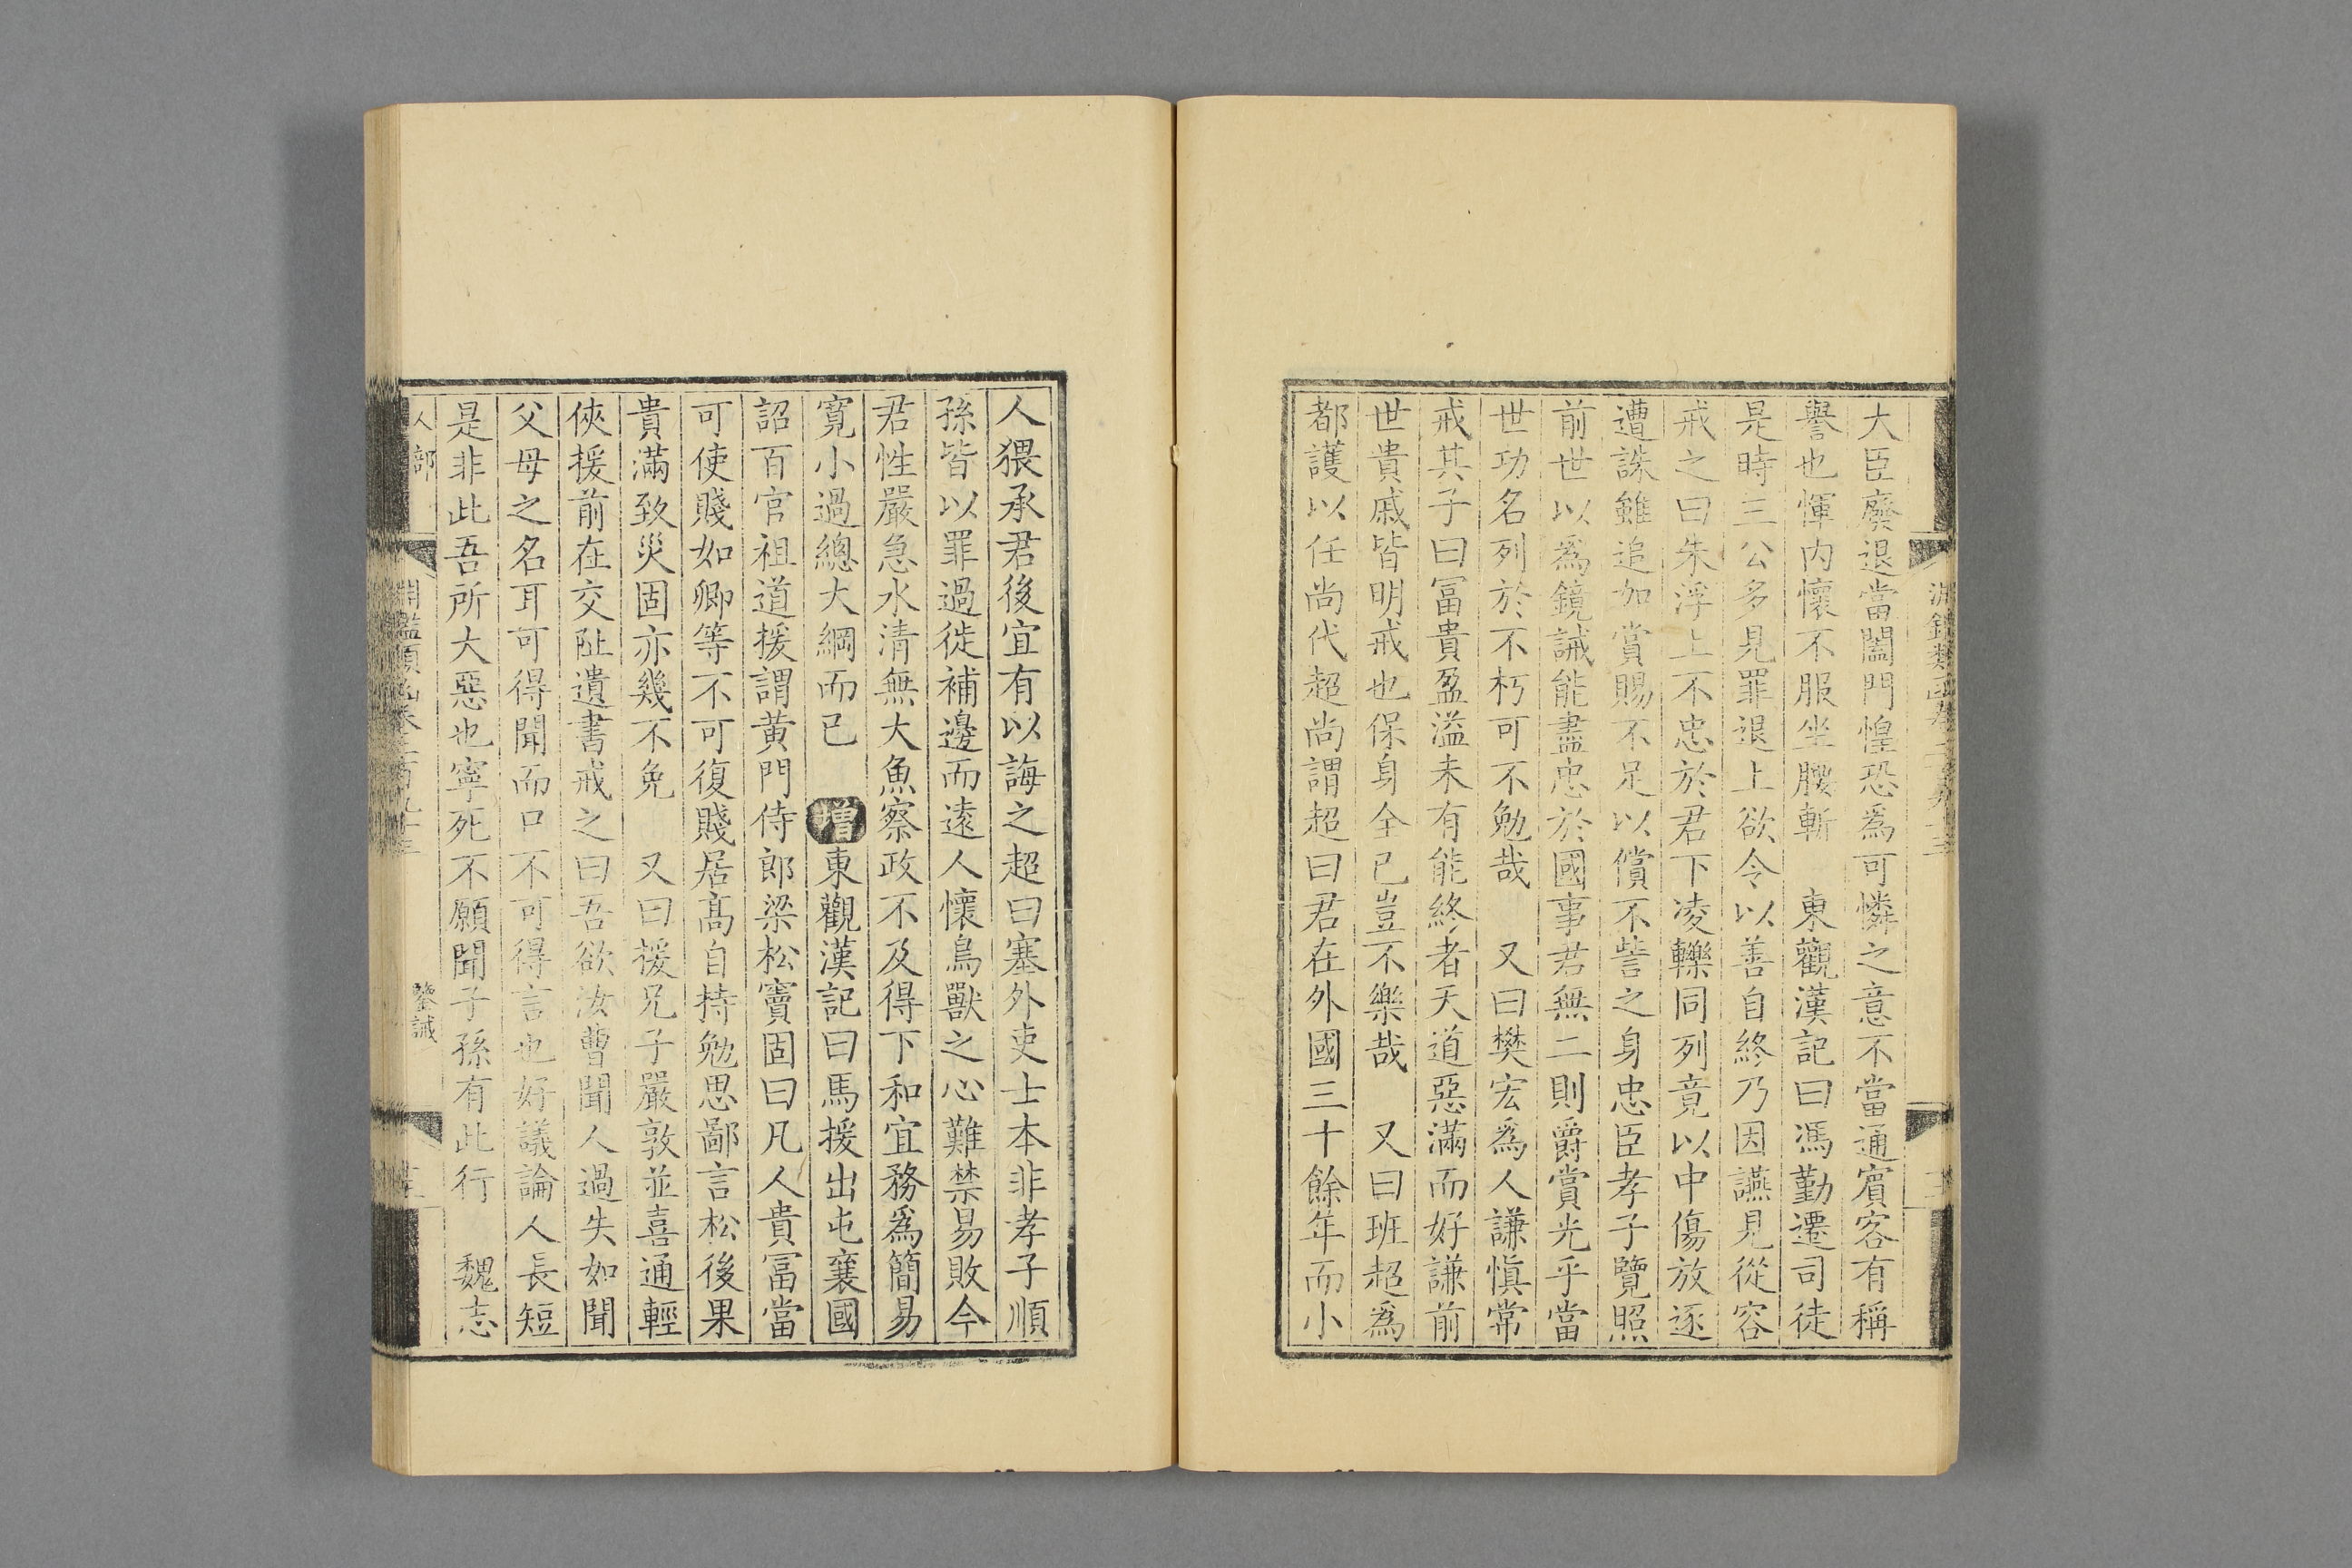 大臣廢退當闔門惶恐爲可憐之意不當通賓客有稱
譽也惲内懷不服坐腰斬　東觀漢記曰馮勤遷司徒
是時三公多見罪退上欲令以善自終乃因讌見從容
戒之曰朱浮上不忠於君下凌轢同列竟以中傷放逐
遭誅雖追加賞賜不足以償不訾之身忠臣孝子覽照
前世以爲鏡誡能盡忠於國事君無二則爵賞光乎當
世功名列於不朽可不勉哉　又曰樊宏爲人謙愼常
戒其子曰冨貴盈溢未有能終者天道惡滿而好謙前
世貴戚皆明戒也保身全己豈不樂哉　又曰班超爲
都護以任尚代超尚謂超曰君在外國三十餘年而小
人猥承君後宜有以誨之超曰塞外吏士本非孝子順
孫皆以罪過徙補邊而逺人懷鳥獸之心難禁易敗今
君性嚴急水清無大魚察政不及得下和宜務爲簡易
寛小過總大綱而已　增東觀漢記曰馬援出屯襄國
詔百官祖道援謂黄門侍郎梁松竇固曰凡人貴冨當
可使賤如卿等不可復賤居髙自持勉思鄙言松後果
貴滿致災固亦幾不免　又曰援兄子嚴敦並喜通輕
俠援前在交阯遺書戒之曰吾欲汝曹聞人過失如聞
父母之名耳可得聞而口不可得言也好議論人長短
是非此吾所大惡也寧死不願聞子孫有此行　魏志
人部
淵鑑類函卷
鑒誡